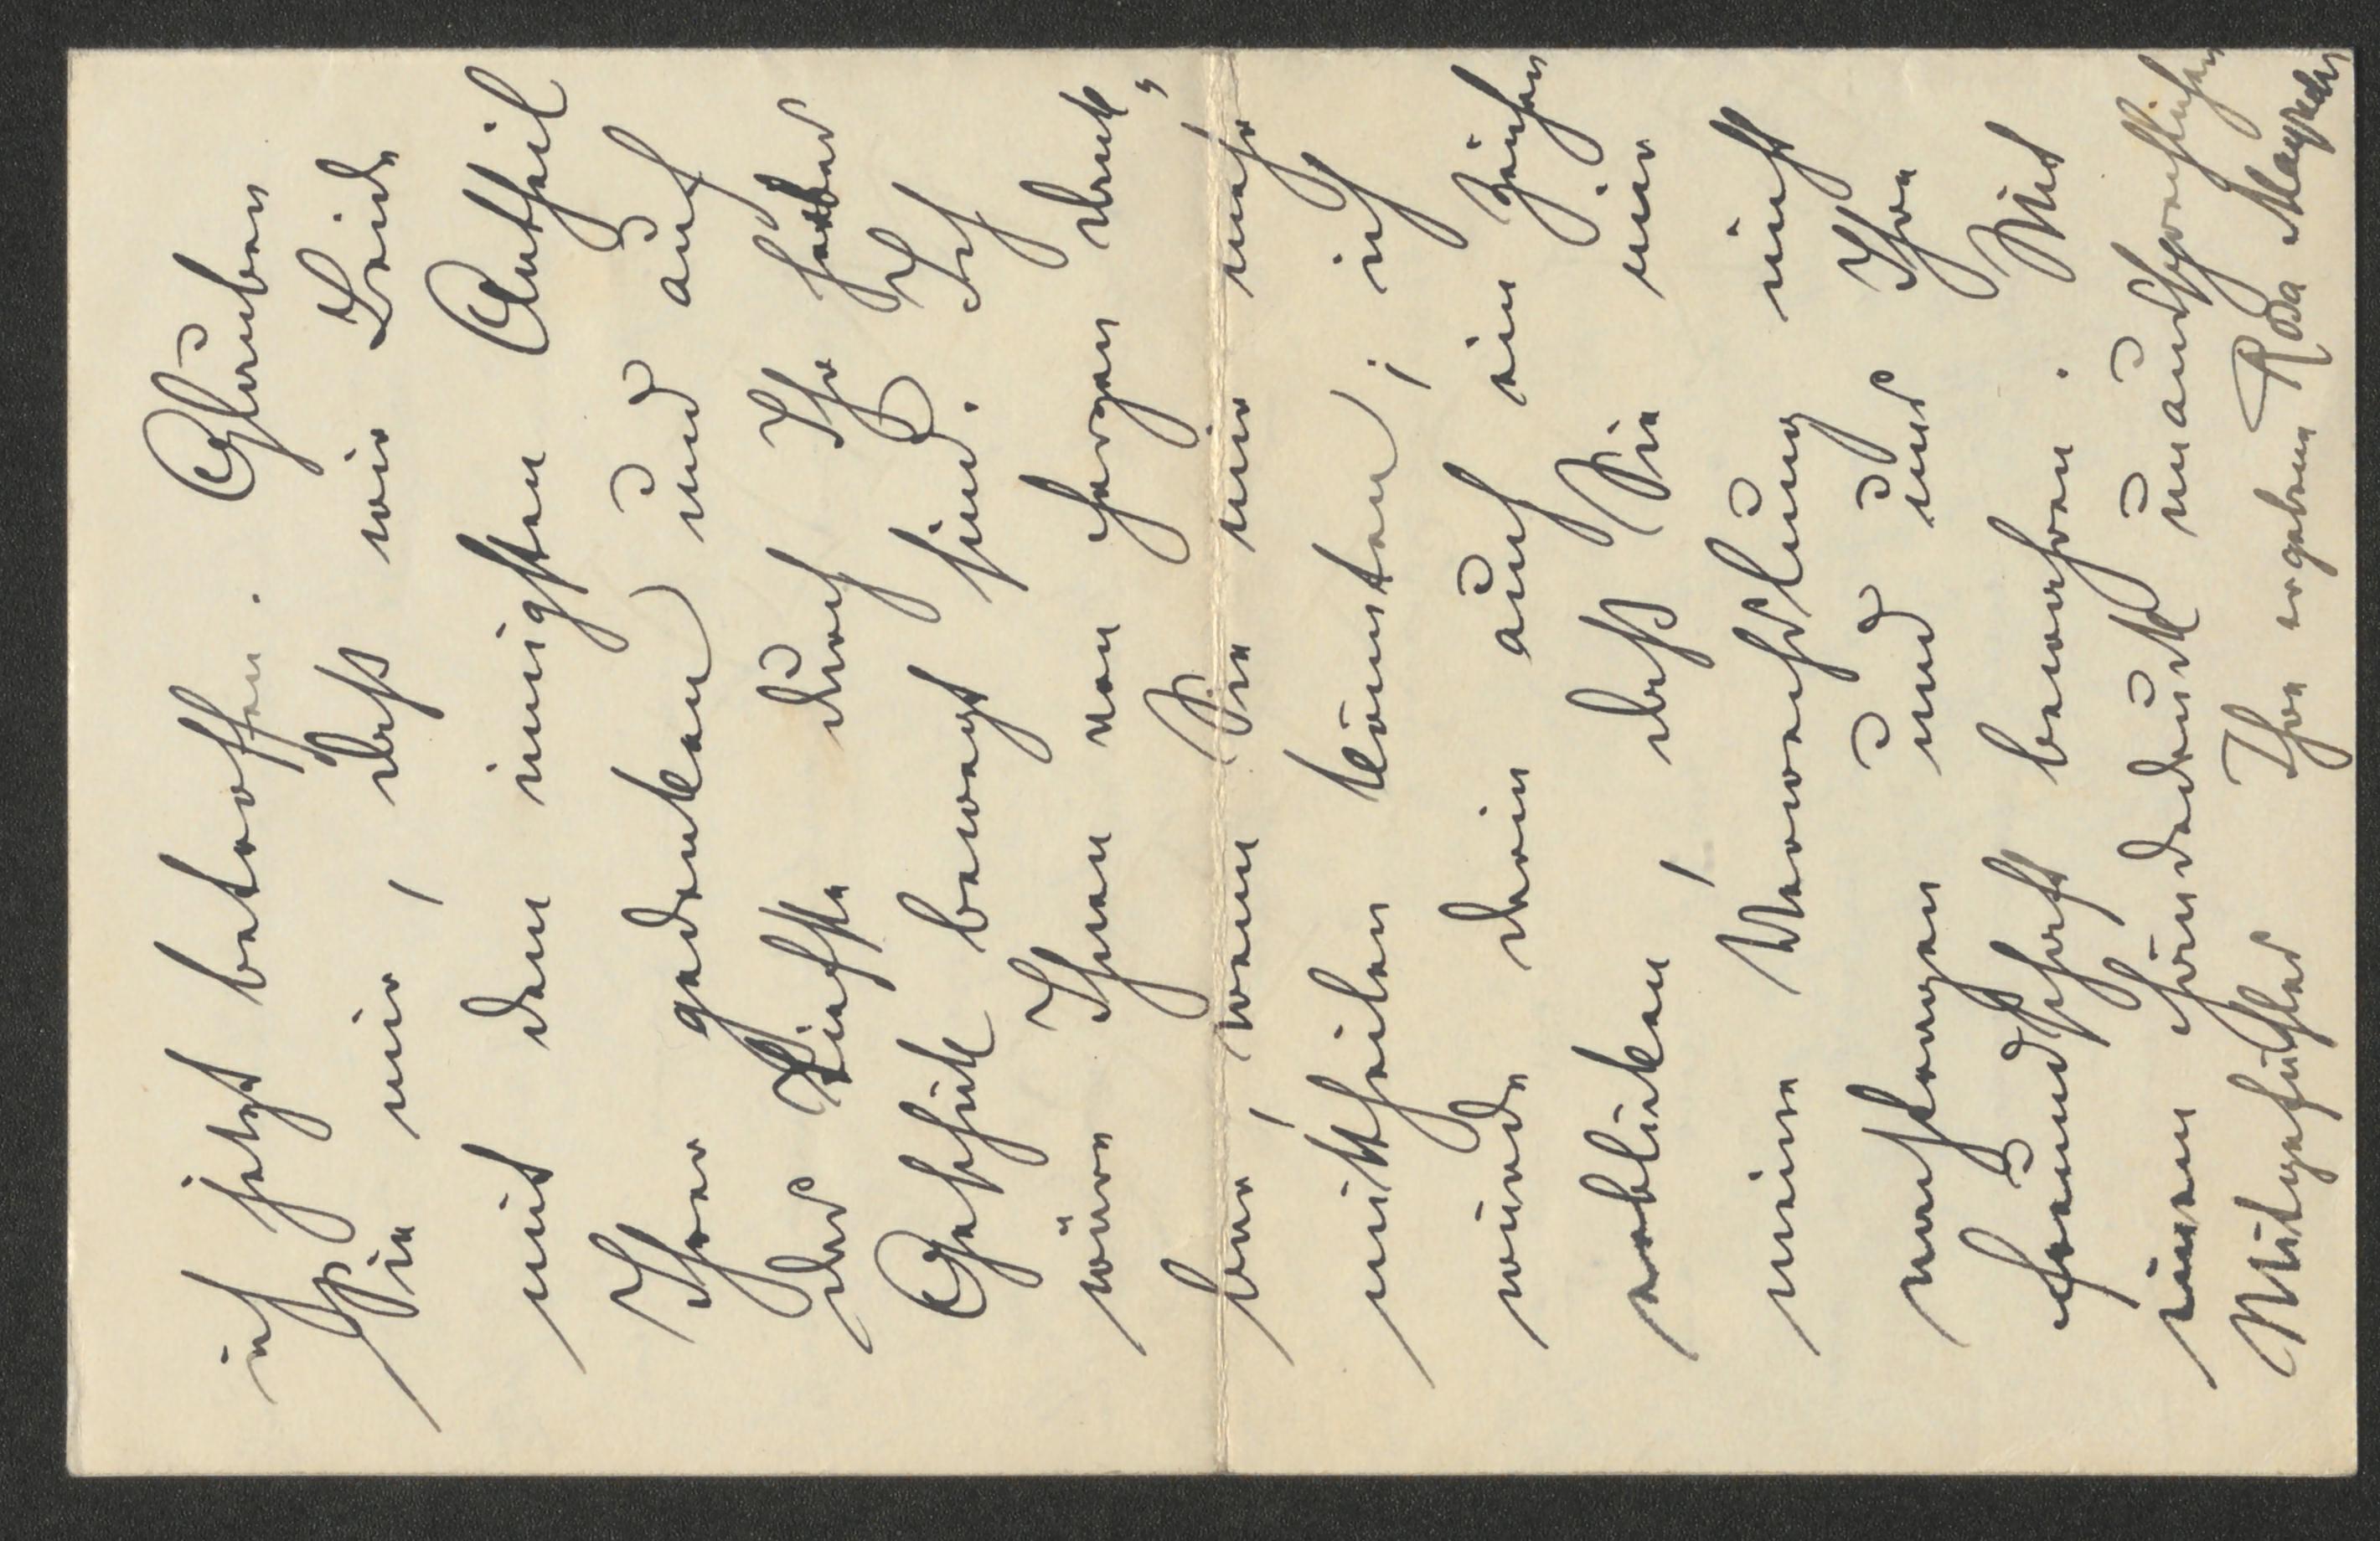 ich jetzt betroffen. Glauben
Sie mir, daß wir Beide
mit dem innigsten Antheil
Ihrer gedenken und auch
das Tiefste durch Ihr herbes
Geschick bewegt sind. Ich
wäre Ihnen von Herzen dank„
bar, wenn Sie mir mehr
mittheilen könnten; ich
würde darin auch ein Zeichen
erblicken, daß Sie mir
meine Verwandlung nicht
nachtragen und uns Ihre
Freundschaft bewahren. Mit
einem Händedruck unaussprechlichen
Mitgefühles Ihre ergebene Rosa Mayreder